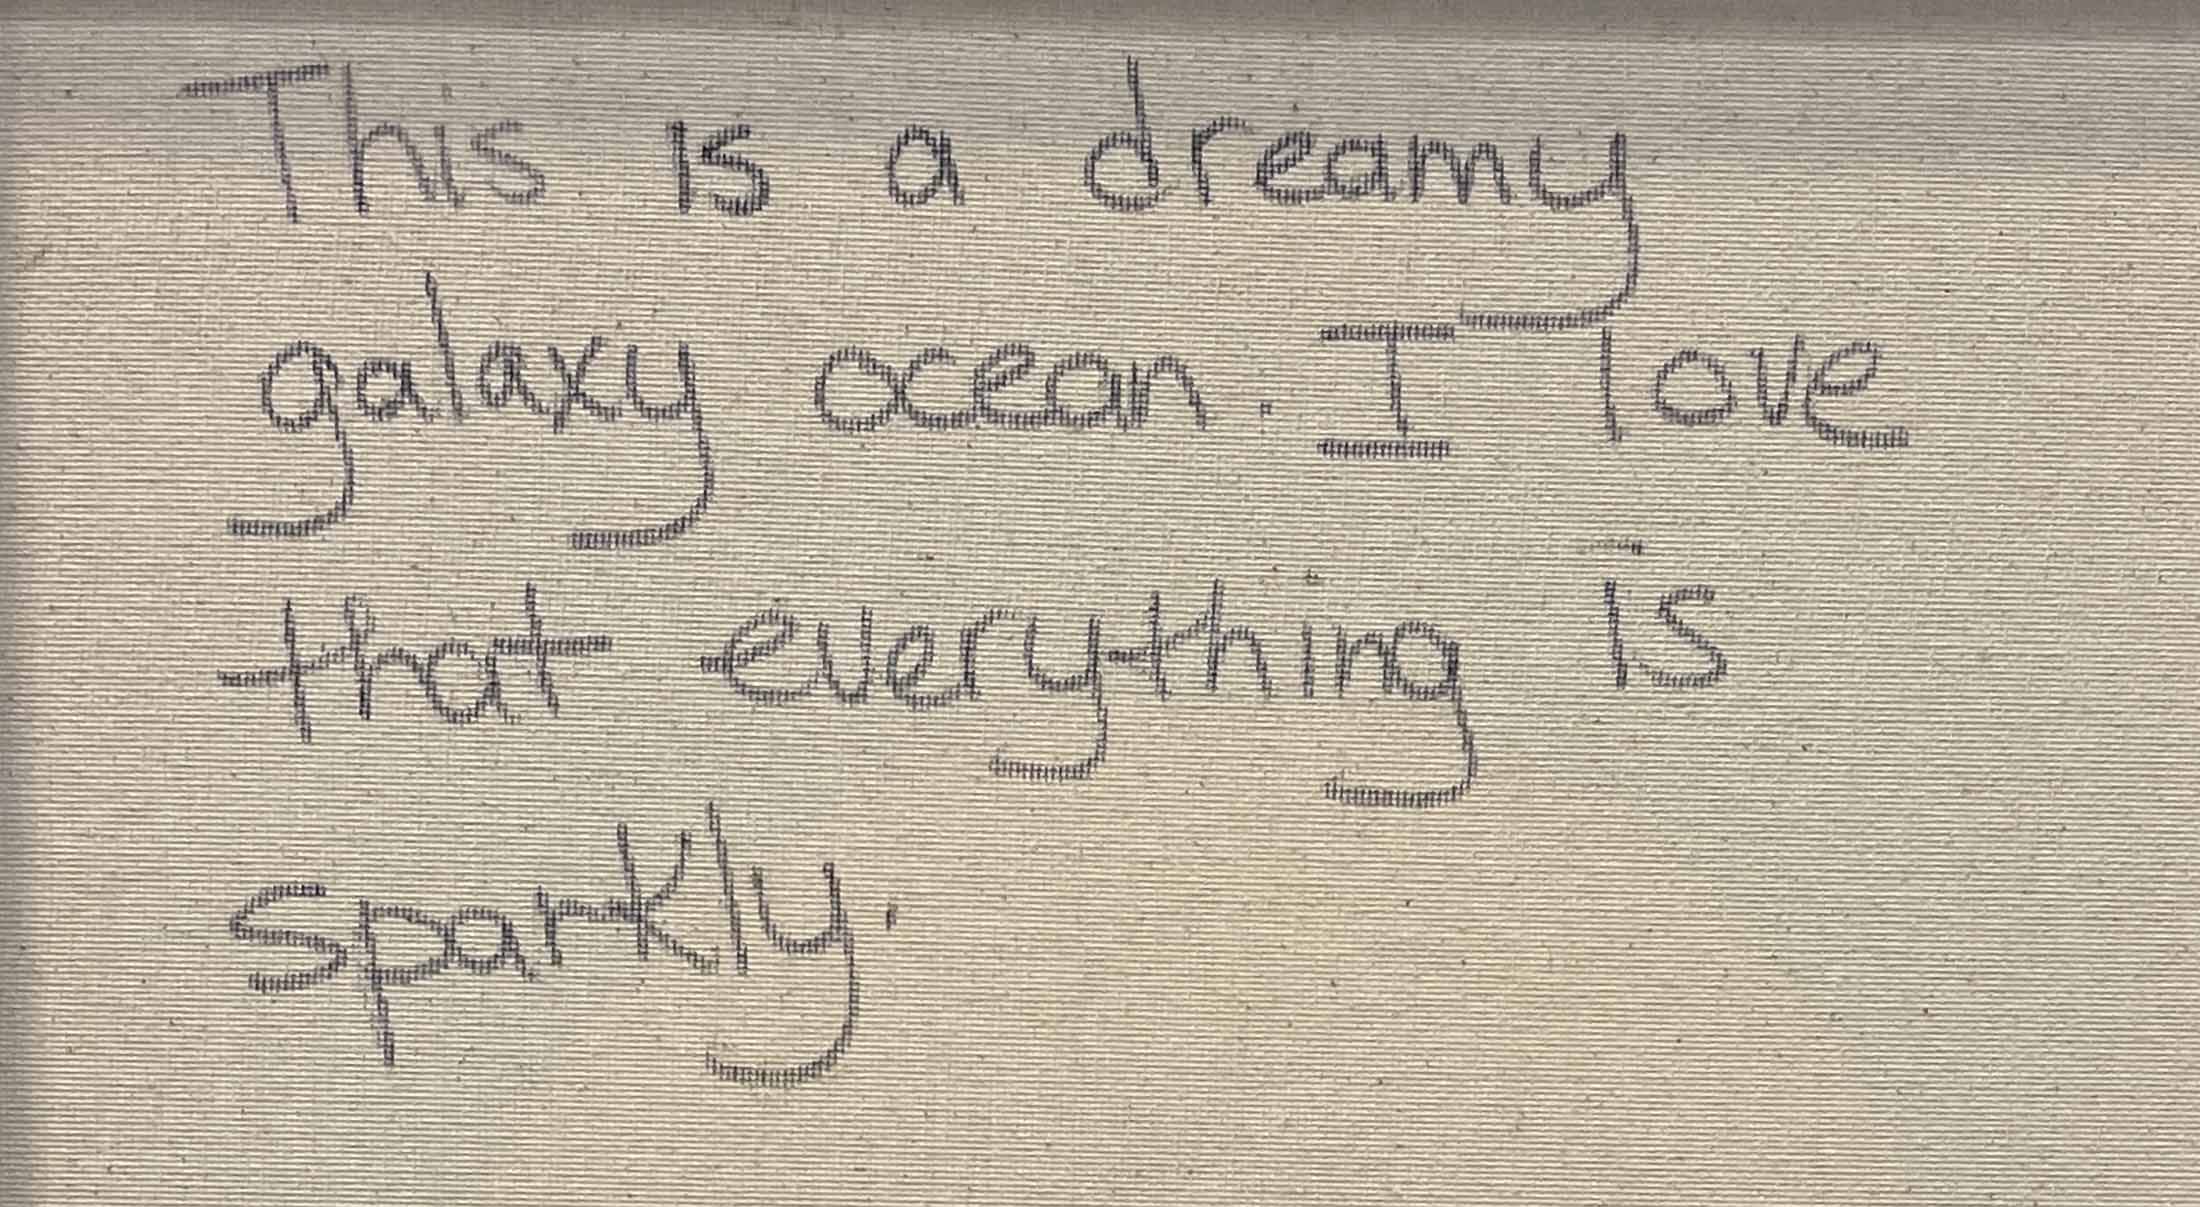 This is a dreamy
galaxy ocean. I love
that everything is
sparkly.